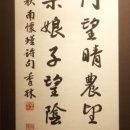 望晴農望
娘子望陰
秋南懷瑾詩句